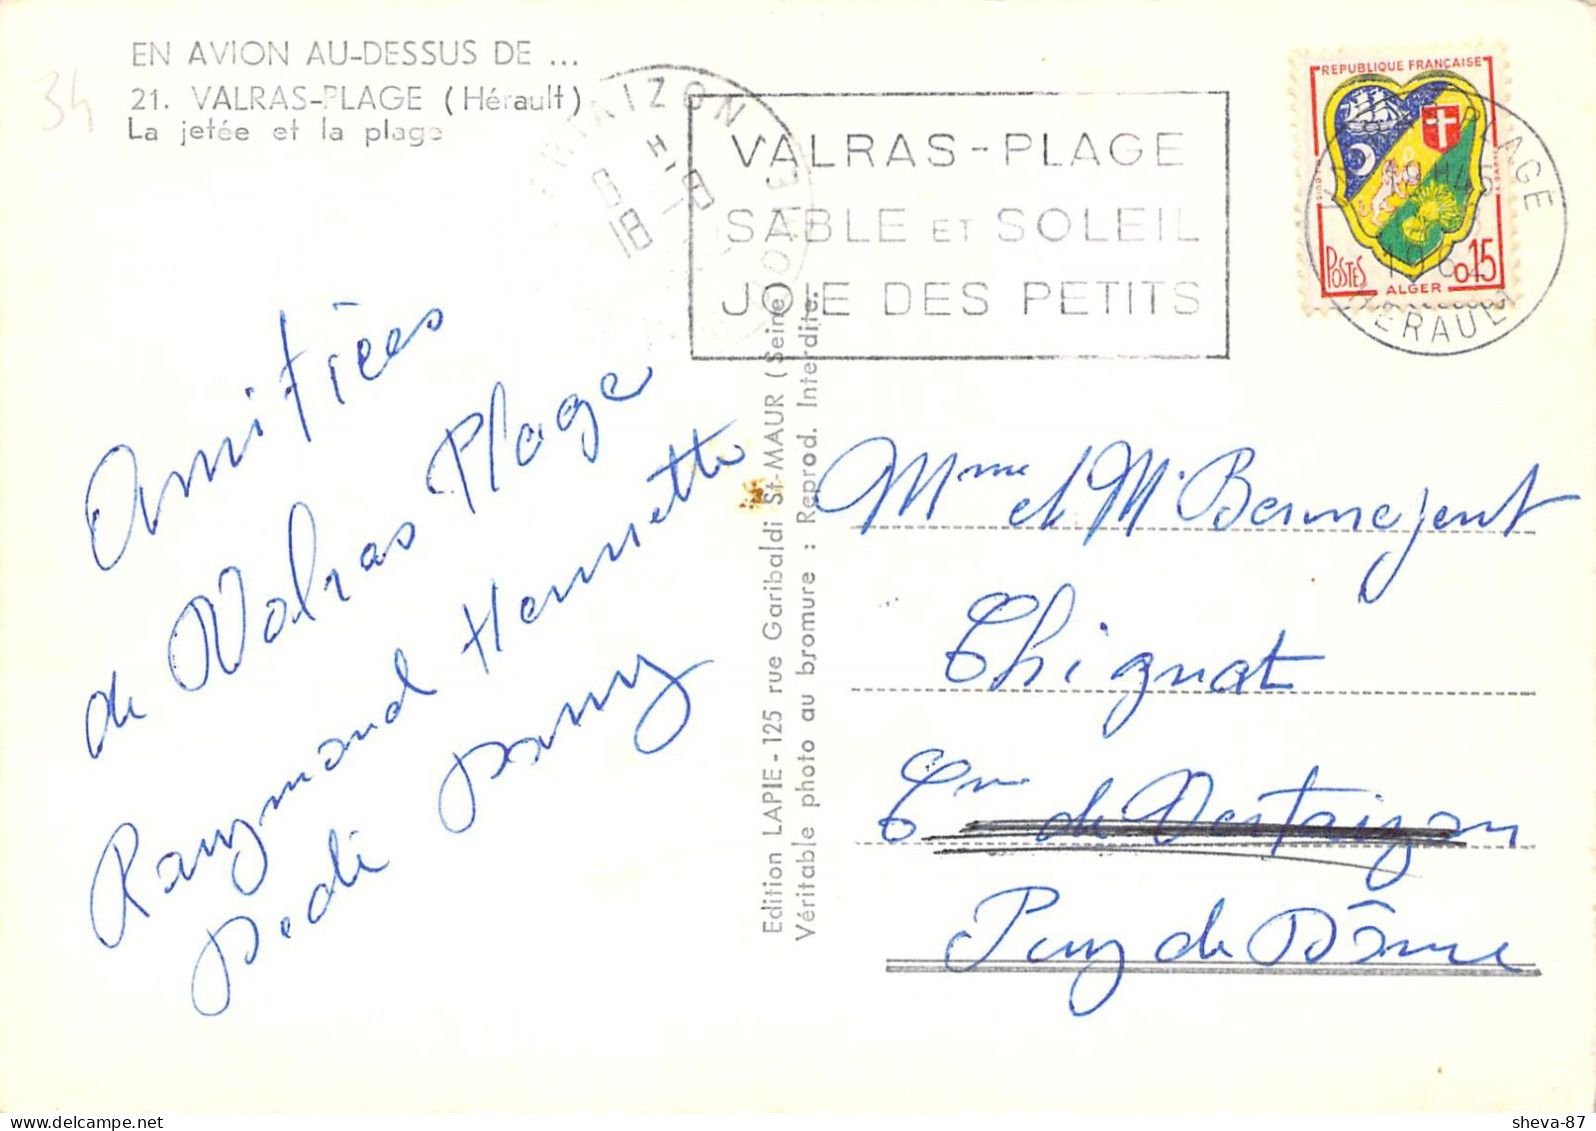 EN AVION AU-DESSUS DE ...
34
21. VALRAS-PLAGE (Hérault)
La jetée et la plage
VALRAS-PLAGE
SABLE ET SOLEIL
JOIE DES PETITS
REPUBLIQUE FRANÇAISE
POSTES
ALGER
0,15
PLAGE
19H45
HERAULT
18
Amitiées
de Valras Plage
Raymond Henriette
Dédi Dany
Edition LAPIE - 125 rue Garibaldi St-MAUR (Seine)
Véritable photo au bromure : Reprod. Interdite.
Mme et Mr Bonnejent
Chignat
Cne de Vertaizon
Puy de Dôme
sheva-87